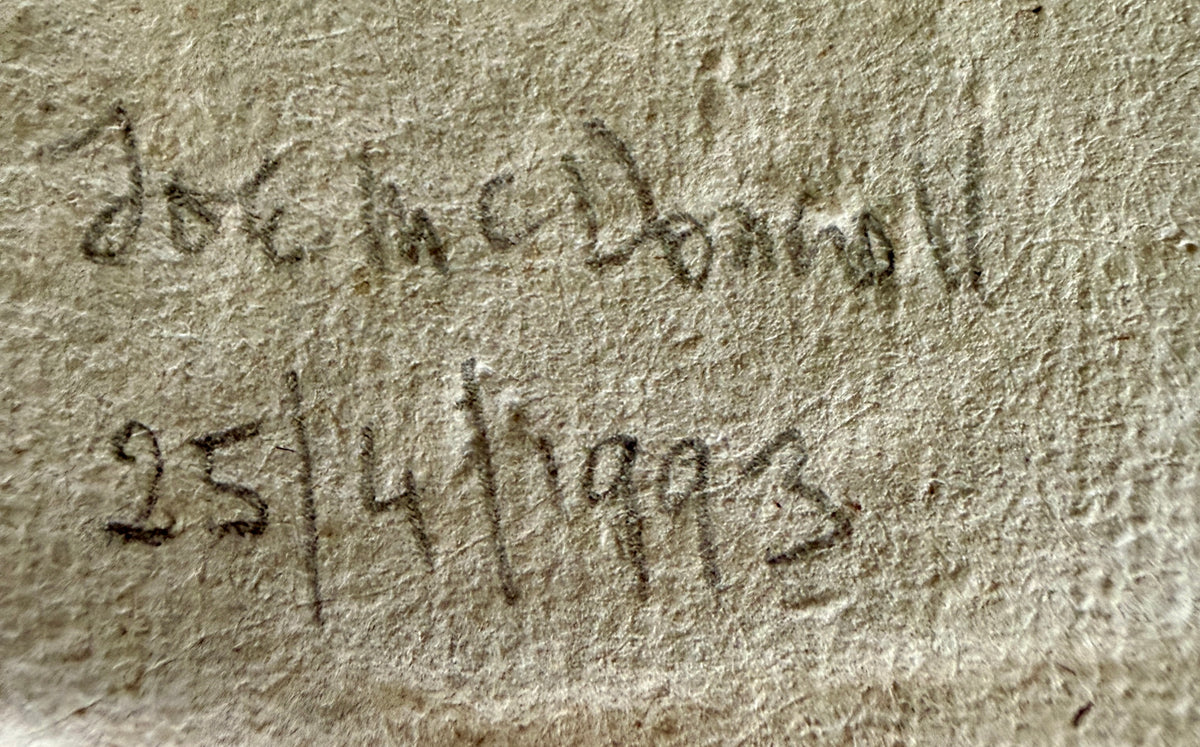 Joe McDonnell
25/4/1993